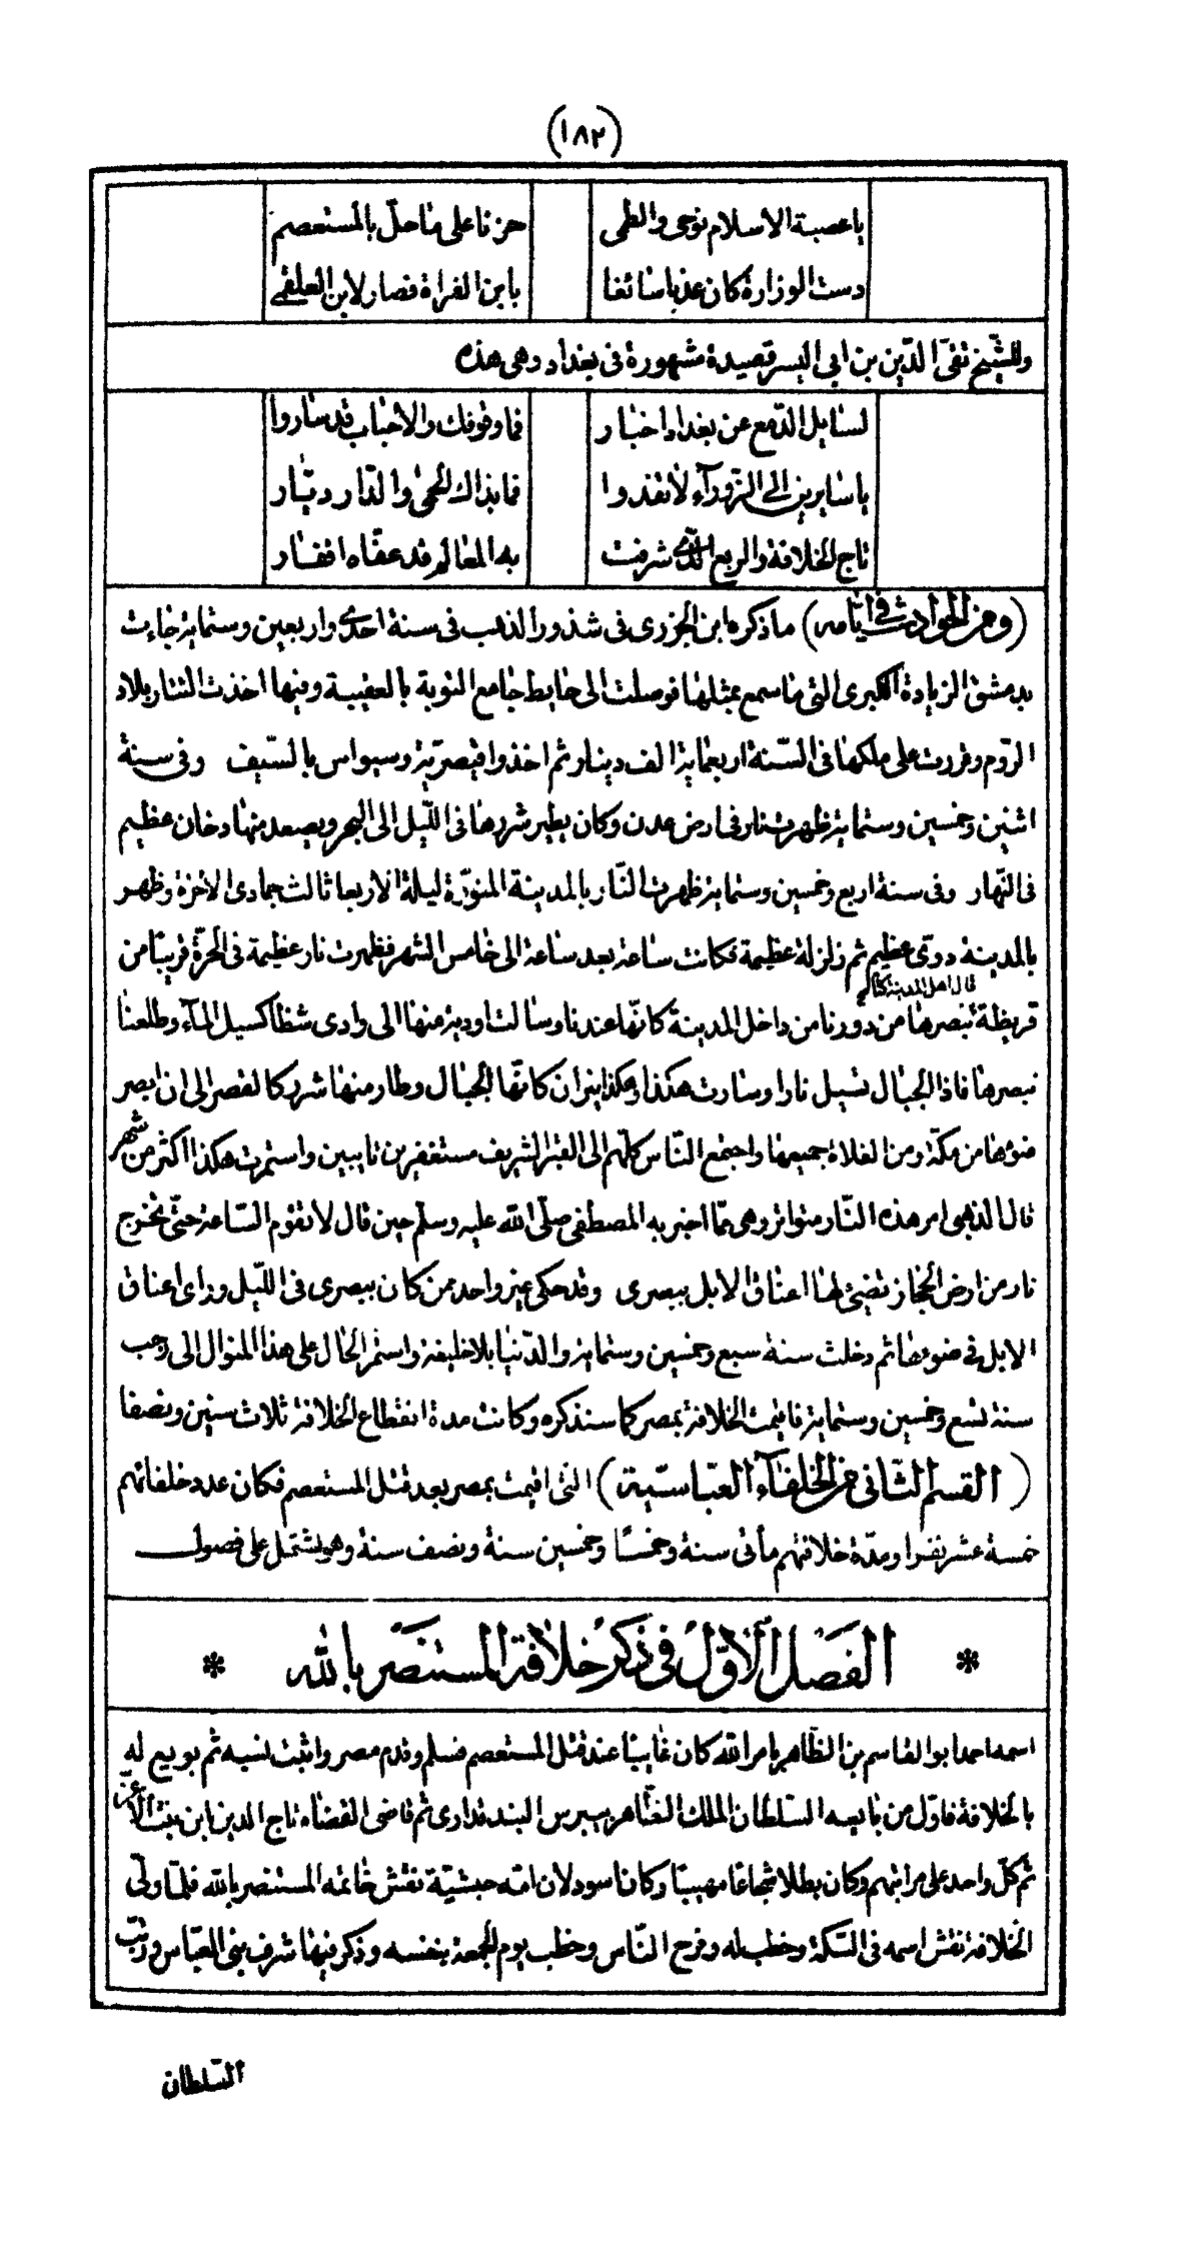 (١٨٢)
يا عصبة الاسلام نوحى والطمى حزنا على ما حلّ بالمستعصم
دست الوزارة كان عذبا سائغا بابن الفراة فصار لابن العلقمى
وللشّيخ تقىّ الدّين بن ابي اليسر قصيدة مشهورة فى بغداد وهى هذه
لسايل الدّمع عن بغداد اخبار فما وقوفك والأحباب قد ساروا
يا سايرين الى الزّورآء لا تفدوا فما بذاك الحمى والدّار ديّار
تاج الخلافة والربع الّذى شرفت به المعالم قد عفّاه اقفار
(ومن الحوادث فى ايّامه) ما ذكره ابن الجزرى فى شذور الذهب فى سنة احدى واربعين وستماية جاءت
بدمشق الزيادة الكبرى التى ما سمع بمثلها فوصلت الى حايط جامع التوبة بالعقيبة وفيها اخذت التتار بلاد
الرّوم وقررت على ملكها فى السّنة اربعماية الف دينار ثم اخذوا قيصريّة وسيواس بالسّيف وفى سنة
اثنين وخمسين وستماية ظهرت نار فى ارض عدن وكان يطير شررها فى اللّيل الى البحر ويصعد منها دخان عظيم
فى النّهار وفى سنة اربع وخمسين وستماية ظهرت النّار بالمدينة المنوّرة ليلة الاربعا ثالث جمادى الأخرة وظهر
بالمدينة دوىّ عظيم ثم زلزلة عظيمة فكانت ساعة بعد ساعة الى خامس الشهر فظهرت نار عظيمة فى الحرّة قريبًا من
قال اهل المدينة كنّا
قريظة نبصرها من دورنا من داخل المدينة كانّها عندنا وسالت اودية منها الى وادى شظا كسيل المآء وطلعنا
نبصرها فاذا الجبال تسيل نارا وسارت هكذا وهكذا نيران كانّها الجبال وطار منها شرر كالقصر الى ان ابصر
ضوءها من مكّة ومن الفلاة جميعها واجتمع النّاس كلّهم الى القبر الشريف مستغفرين تايبين واستمرت هكذا اكثر من شهر
قال الذهبى امر هذه النّار متواتر وهى ممّا اخبر به المصطفى صلّى الله عليه وسلّم حين قال لا تقوم السّاعة حتّى تخرج
نار من ارض الحجاز تضئ لها اعناق الابل ببصرى وقد حكى غير واحد ممن كان ببصرى فى اللّيل وراى اعناق
الابل فى ضوءها ثم دخلت سنة سبع وخمسين وستماية والدّنيا بلا خليفة واستمر الحال على هذا المنوال الى رجب
سنة تسع وخمسين وستماية فاقيمت الخلافة بمصر كما سنذكره وكانت مدة انقطاع الخلافة ثلاث سنين ونصفا
(القسم الثّانى من الخلفآء العبّاسيّة) التى اقيمت بمصر بعد قتل المستعصم فكان عدد خلفائهم
خمسة عشر نفرا ومدّة خلافتهم مأتى سنة وخمسًا وخمسين سنة ونصف سنة وهو يشتمل على فصول
* الفصل الأوّل فى ذكر خلافة المستنصر بالله *
اسمه احمد ابو القاسم بن الظّاهر بامر الله كان غايبًا عند قتل المستعصم فسلم وقدم مصر واثبت نسبه ثم بويع له
بالخلافة فاوّل من بايعه السّلطان الملك الظّاهر بيبرس البندقدارى ثم قاضى القضاة تاج الدين ابن بنت الأعزّ
ثم كلّ واحد على مراتبهم وكان بطلا شجاعًا مهيبًا وكان اسود لان امّه حبشيّة نقش خاتمه المستنصر بالله فلمّا ولّى
الخلافة نقش اسمه فى السّكة وخطب له وفرح النّاس وخطب يوم الجمعة بنفسه وذكر فيها شرف بنى العبّاس ورتّب
السّلطان